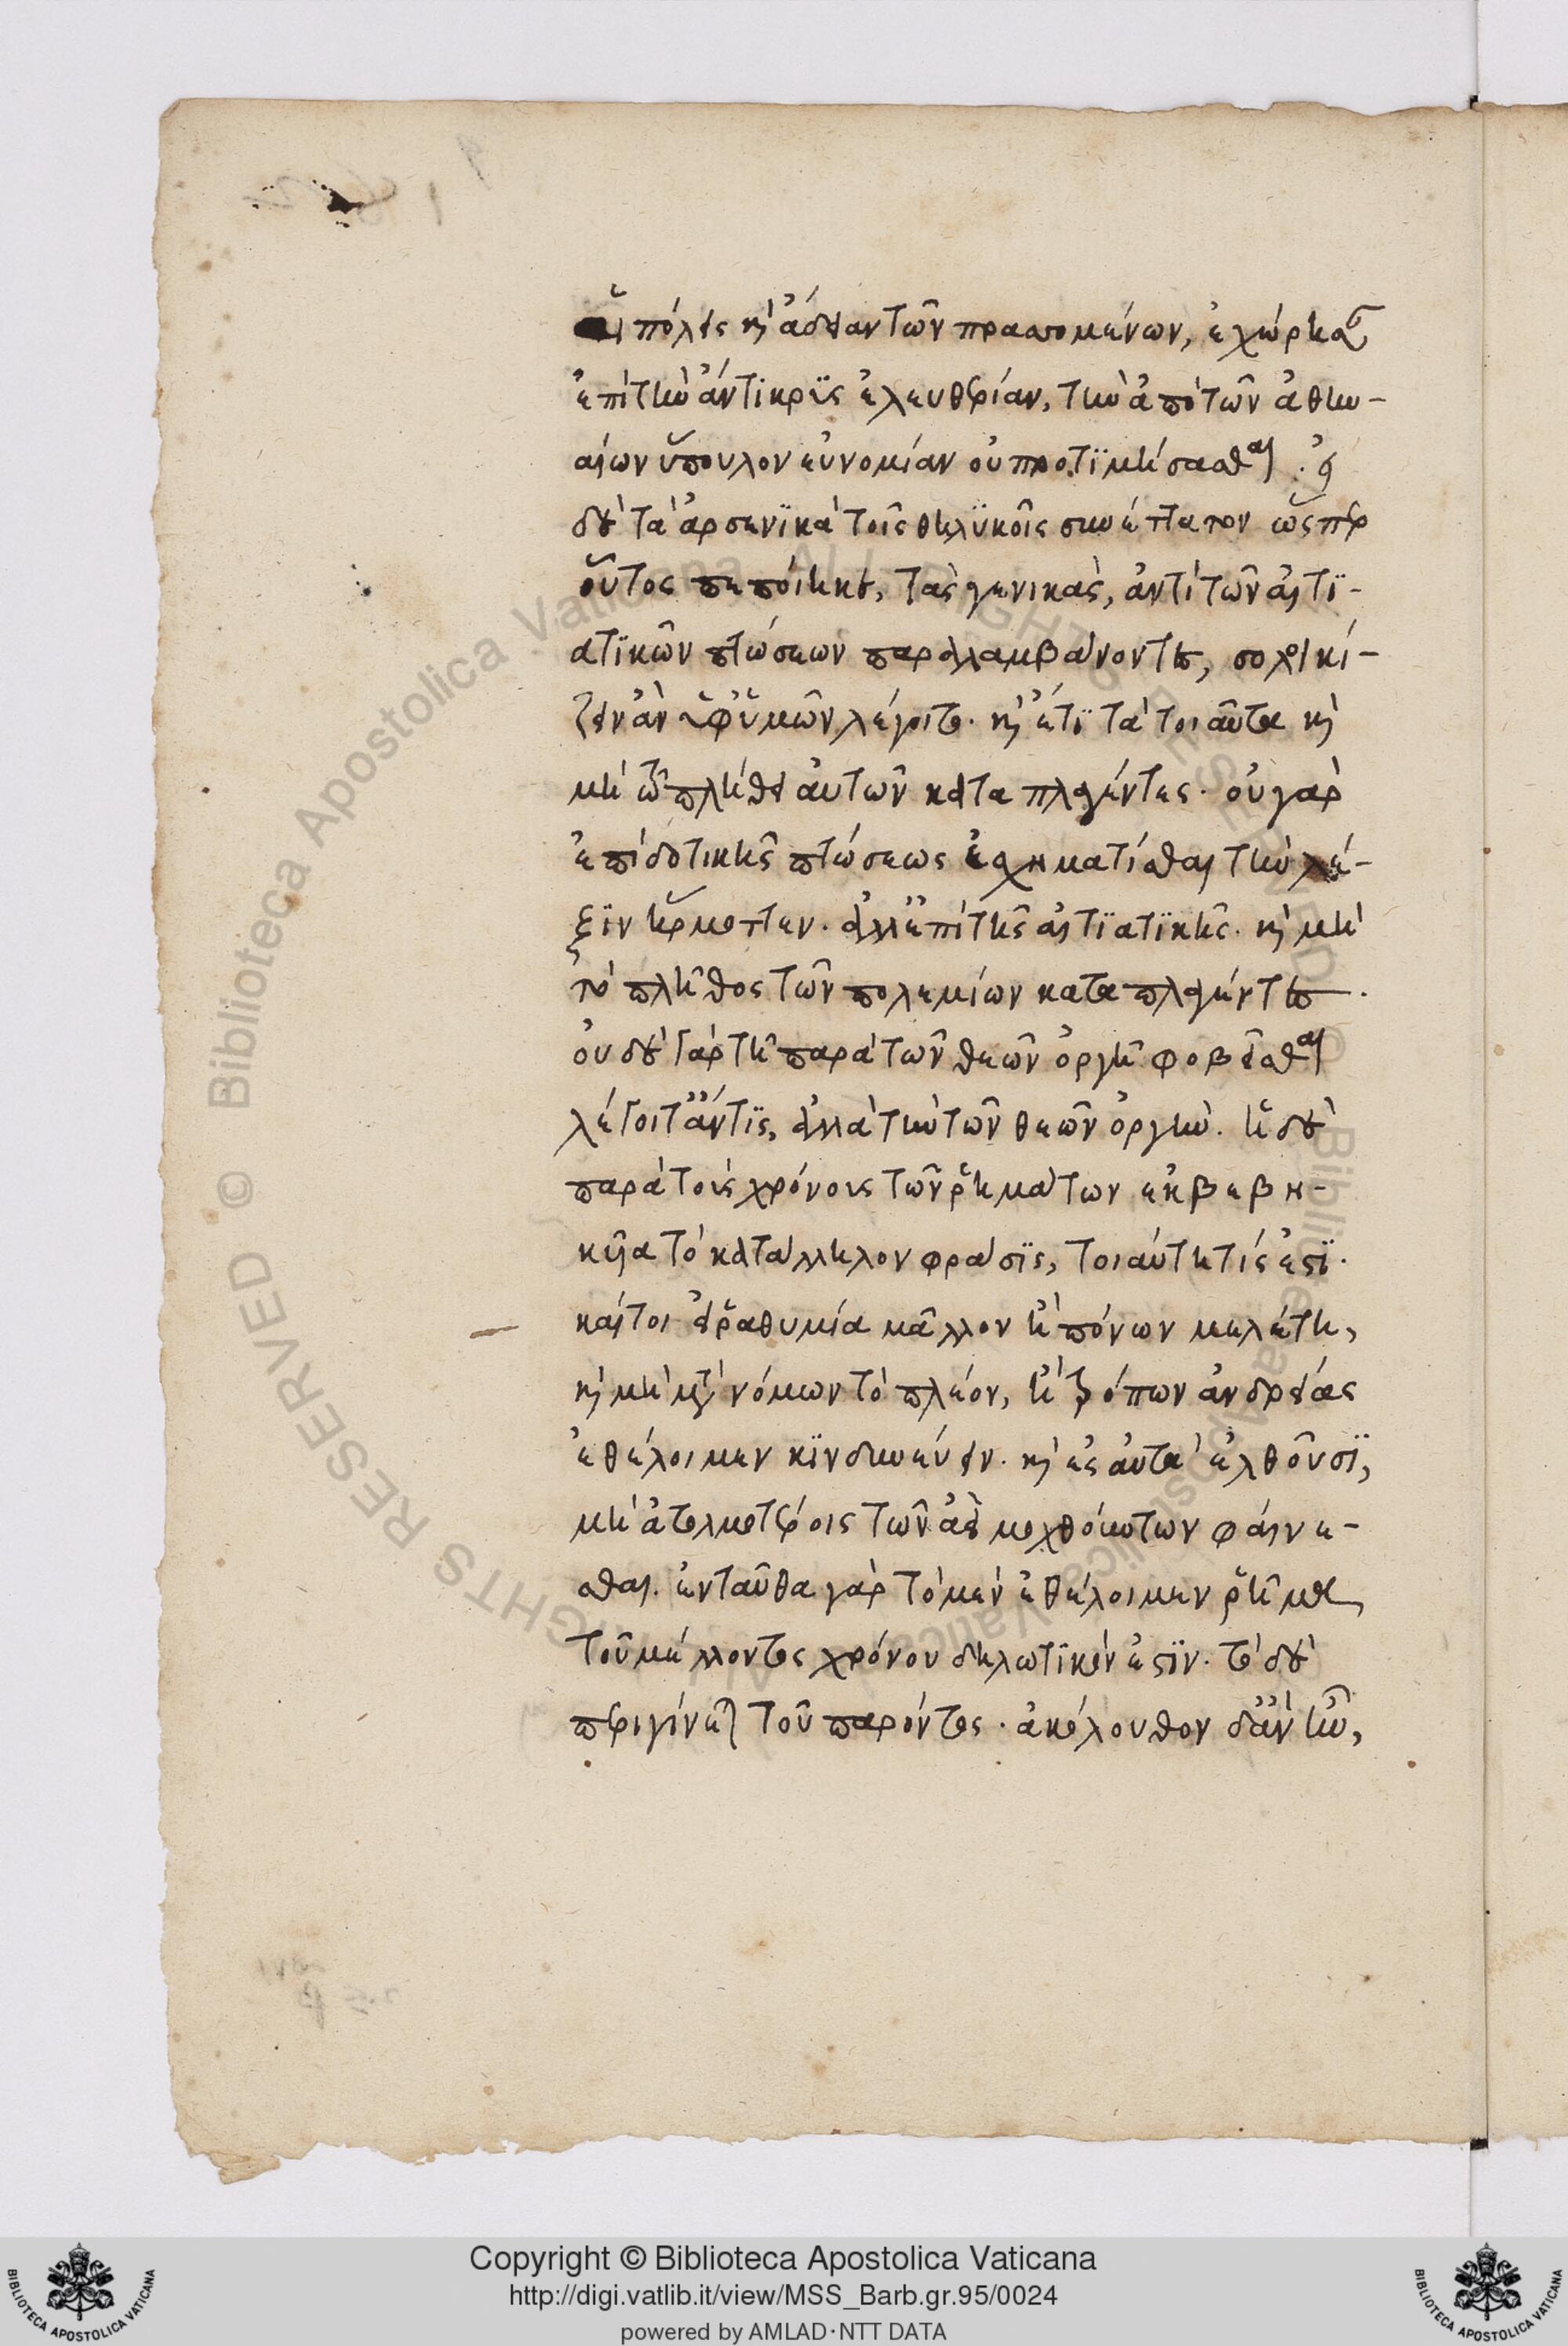 αἱ πόλεις καὶ ἄδειαν τῶν πρασσομένων, ἐχώρησαν
ἐπὶ τὴν ἄντικρϊς ἐλευθερίαν, τὴν ἀπὸ τῶν ἀθη-
αίων ὕπουλον εὐνομίαν οὐ προτϊμήσασθαι. εἰ
δὲ τὰ ἀρσενϊκὰ τοῖς θηλϋκοῖς συνέπταττον ὥσπερ
οὗτος πεποίηκε, τὰς γενικὰς, ἀντὶ τῶν αἰτϊ-
ατϊκῶν πτώσεων παραλαμβάνοντες, σολικί-
ζειν ἂν ὑφ' ὑμῶν λέγοιτο. καὶ ἔτϊ τὰ τοιαῦτα καὶ
μὴ τῶ πλήθει αὐτῶν καταπλαγέντες. οὐ γὰρ
ἐπὶ δοτικῆς πτώσεως ἐσχηματίσθαι τὴν λέ-
ξϊν ἥρμοττεν. ἀλλ' ἐπὶ τῆς αἰτϊατϊκῆς. καὶ μὴ
τὸ πλῆθος τῶν πολεμίων καταπλαγέντες.
οὐδὲ γὰρ τῆ παρὰ τῶν θεῶν ὀργῆ φοβεῖσθαι
λέγοιτ' ἄντϊς, ἀλλὰ τὴν τῶν θεῶν ὀργήν. ἡ δὲ
παρὰ τοὺς χρόνους τῶν ῥημάτων ἐκβεβη-
κυῖα τὸ κατάλληλον φράσϊς, τοιαύτη τίς ἐστϊ.
καίτοι εἰ ῥαθυμία μᾶλλον ἢ πόνων μελέτη,
καὶ μὴ μετὰ νόμων τὸ πλέον, ἢ τρόπων ἀνδρείας
ἐθέλοιμεν κϊνδυνεύειν. καὶ ἐς αὐτὰ ἐλθοῦσϊ,
μὴ ἀτολμοτέροις τῶν ἀεὶ μοχθούντων φαίνε-
σθαι. ἐνταῦθα γὰρ τὸ μὲν ἐθέλοιμεν ῥῆμα,
τοῦ μέλλοντος χρόνου δηλωτϊκόν ἐστϊν. τὸ δὲ
περιγίνεται τοῦ παρόντος. ἀκόλουθον δ' ἂν ἦν,
Copyright © Biblioteca Apostolica Vaticana
http://digi.vatlib.it/view/MSS_Barb.gr.95/0024
powered by AMLAD·NTT DATA
BIBLIOTECA APOSTOLICA VATICANA
BIBLIOTECA APOSTOLICA VATICANA